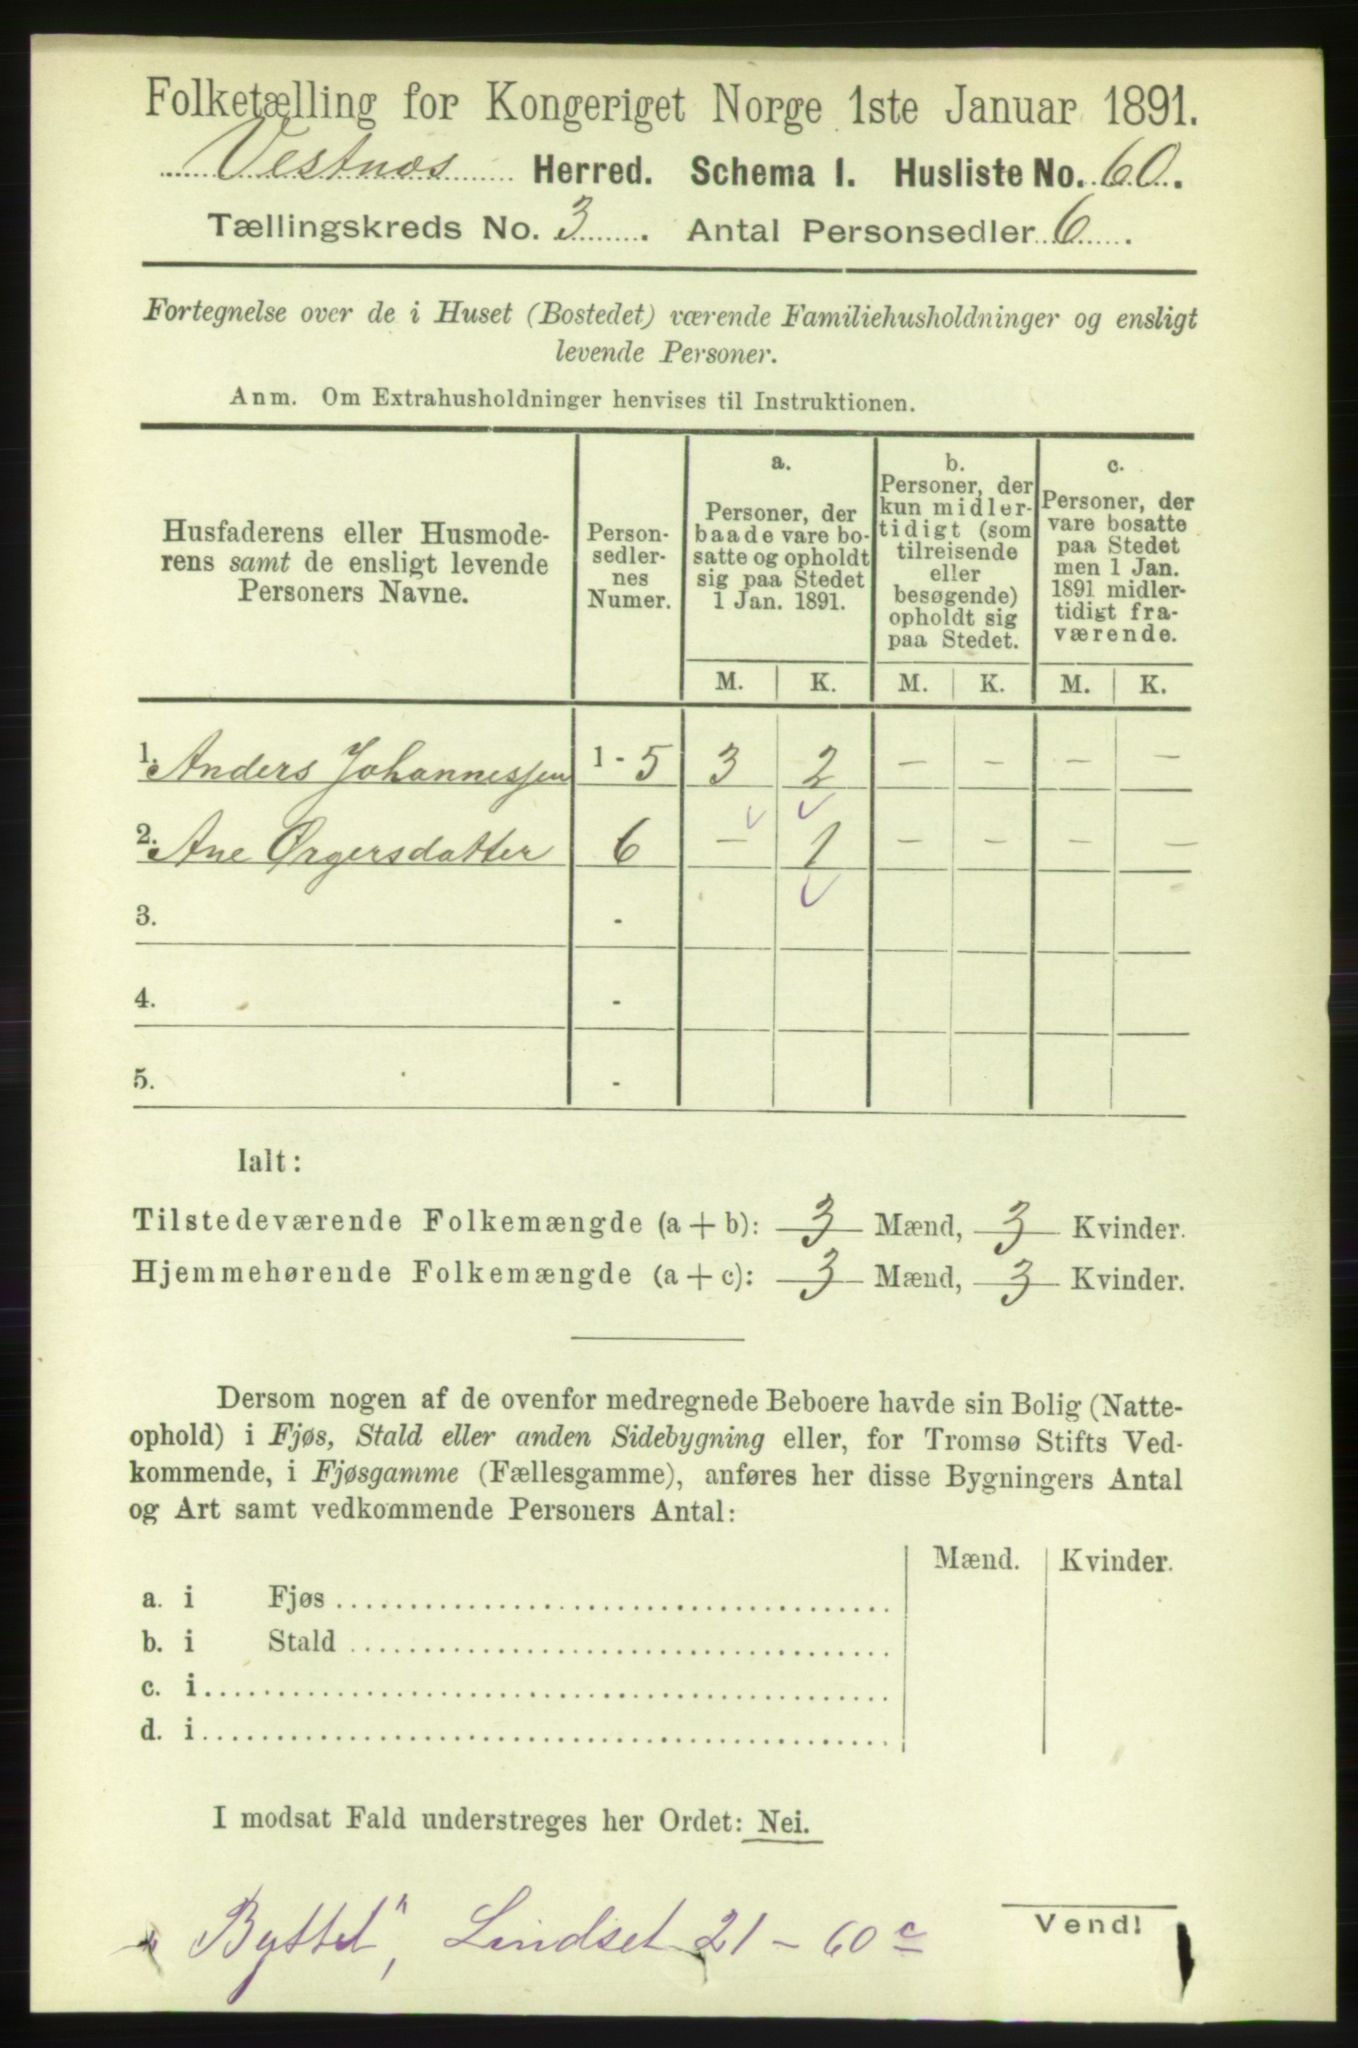 Folketælling for Kongeriget Norge 1ste Januar 1891.
Vestnæs Herred. Schema I. Husliste No. 60.
Tællingskreds No. 3. Antal Personsedler 6.
Fortegnelse over de i Huset (Bostedet) værende Familiehusholdninger og ensligt
levende Personer.
Anm. Om Extrahusholdninger henvises til Instruktionen.
Husfaderens eller Husmode-
rens samt de ensligt levende
Personers Navne.
Person-
sedler-
nes
Numer.
a.
Personer, der
baade vare bo-
satte og opholdt
sig paa Stedet
1 Jan. 1891.
b.
Personer, der
kun midler-
tidigt (som
tilreisende
eller
besøgende)
opholdt sig
paa Stedet.
c.
Personer, der
vare bosatte
paa Stedet
men 1 Jan.
1891 midler-
tidigt fra-
værende.
M. K. M. K. M. K.
1. Anders Johannessen 1 - 5 3 2 - - - -
2. Ane Ørgersdatter 6 - 1 - - - -
3. -
4. -
5. -
Ialt:
Tilstedeværende Folkemængde (a + b): 3 Mænd, 3 Kvinder.
Hjemmehørende Folkemængde (a + c): 3 Mænd, 3 Kvinder.
Dersom nogen af de ovenfor medregnede Beboere havde sin Bolig (Natte-
ophold) i Fjøs, Stald eller anden Sidebygning eller, for Tromsø Stifts Ved-
kommende, i Fjøsgamme (Fællesgamme), anføres her disse Bygningers Antal
og Art samt vedkommende Personers Antal:
Mænd. Kvinder.
a. i Fjøs
b. i Stald
c. i
d. i
I modsat Fald understreges her Ordet: Nei.
Vend!
Lindset 21 - 60 c